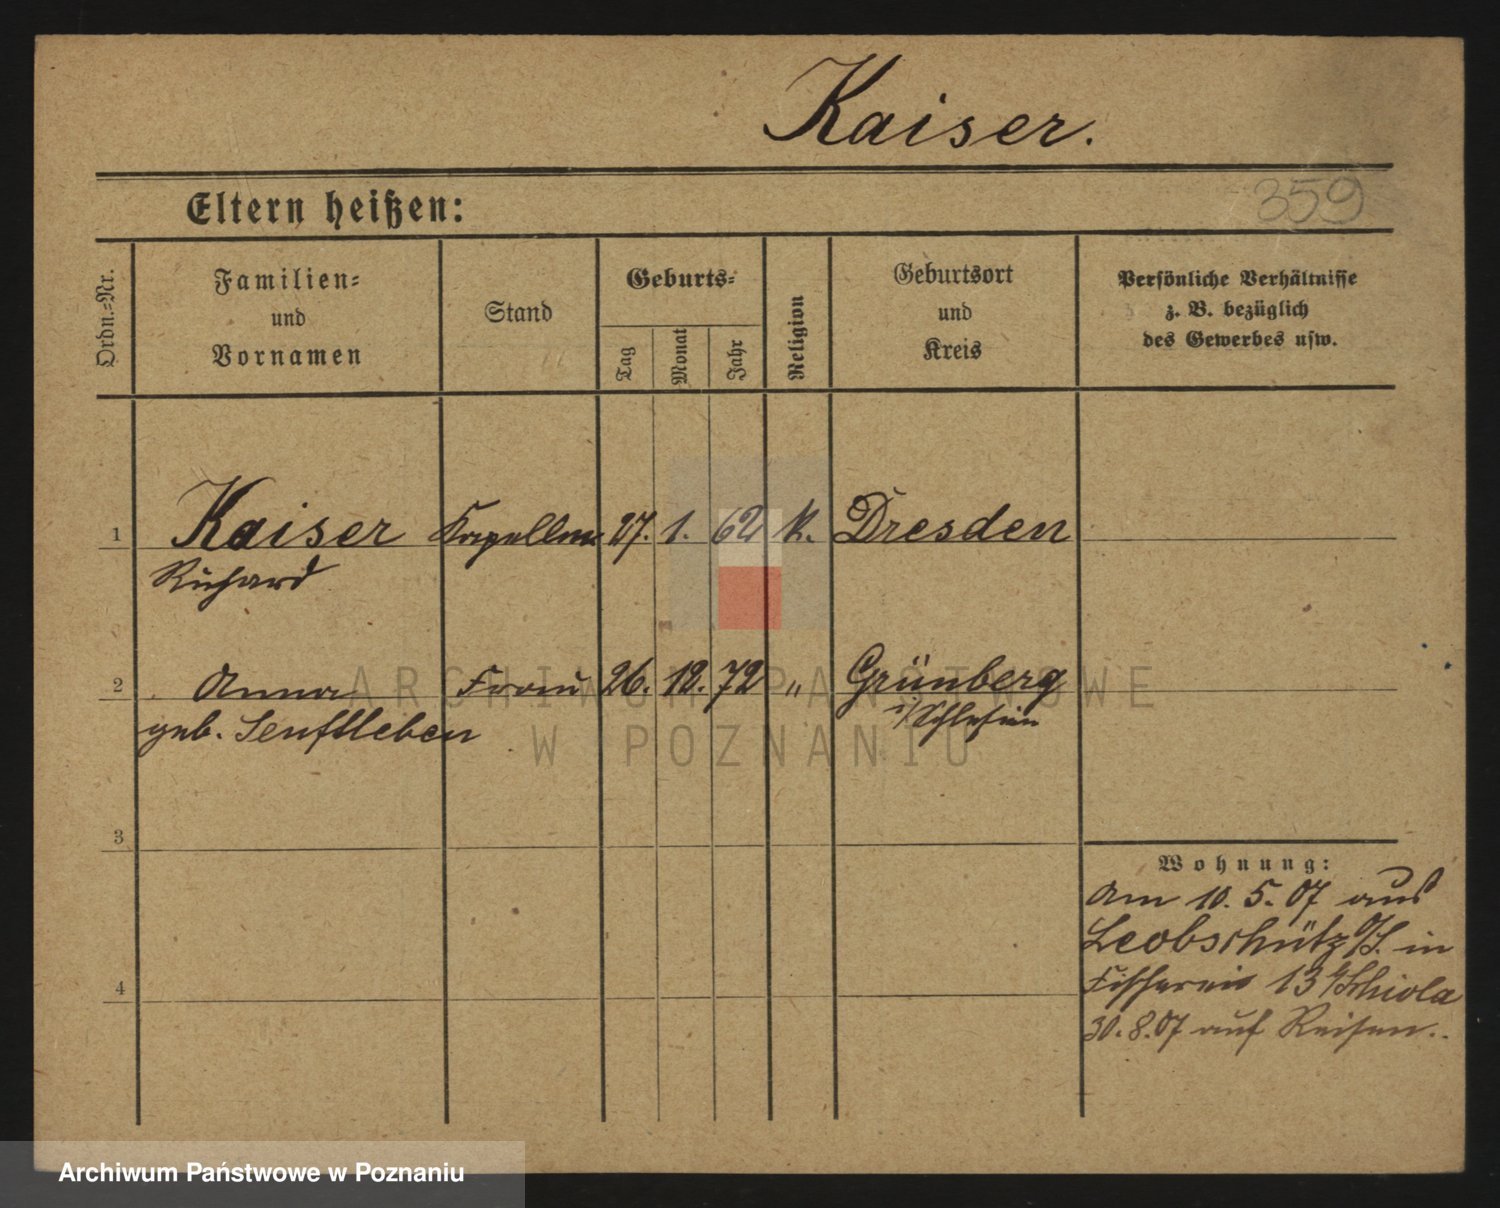 Kaiser.
359
Eltern heißen:
Ordn.-Nr.
Familien-
und
Vornamen
Stand
Geburts-
Tag
Monat
Jahr
Religion
Geburtsort
und
Kreis
Persönliche Verhältnisse
z. B. bezüglich
des Gewerbes usw.
1 Kaiser Kapellm 27. 1. 62 k. Dresden
Richard
2 Anna Frau 26. 12. 72 " Grünberg
geb. Senftleben i/Schlesien
3
4
Wohnung:
Am 10. 5. 07 aus
Leobschütz O/S. in
Fischerei 13
30. 8. 07 auf Reisen.
ARCHIWUM PAŃSTWOWE
W POZNANIU
Archiwum Państwowe w Poznaniu